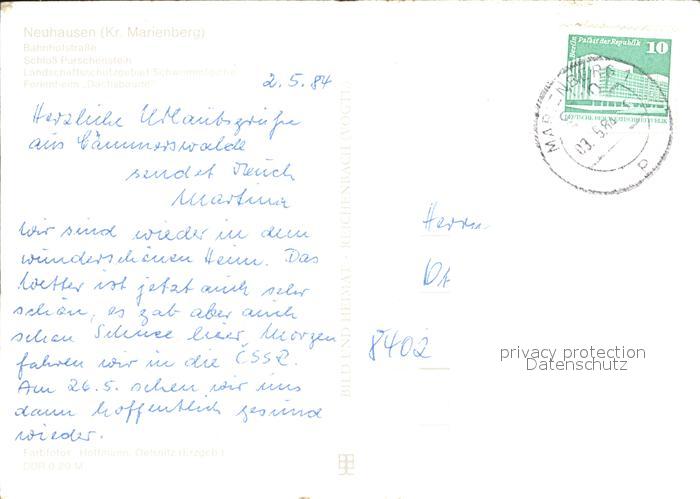 Neuhausen (Kr. Marienberg)
Bahnhofstraße
Schloß Purschenstein
Landschaftsschutzgebiet Schwemmteiche
Ferienheim „Dachsbaude“
2.5.84
Herzliche Urlaubsgrüße
aus Cämmerswalde
sendet Euch
Martina
Wir sind wieder in dem
wunderschönen Heim. Das
Wetter ist jetzt auch sehr
schön, es gab aber auch
schon Schnee hier. Morgen
fahren wir in die ČSSR.
Am 26.5. sehen wir uns
dann hoffentlich gesund
wieder.
Farbfotos: Hoffmann, Oelsnitz (Erzgeb.)
DDR 0,20 M
BILD UND HEIMAT · REICHENBACH (VOGTL)
Berlin Palast der Republik
10
DEUTSCHE DEMOKRATISCHE REPUBLIK
MARIENBERG 1
03.5.84
Herrn
8402
privacy protection
Datenschutz